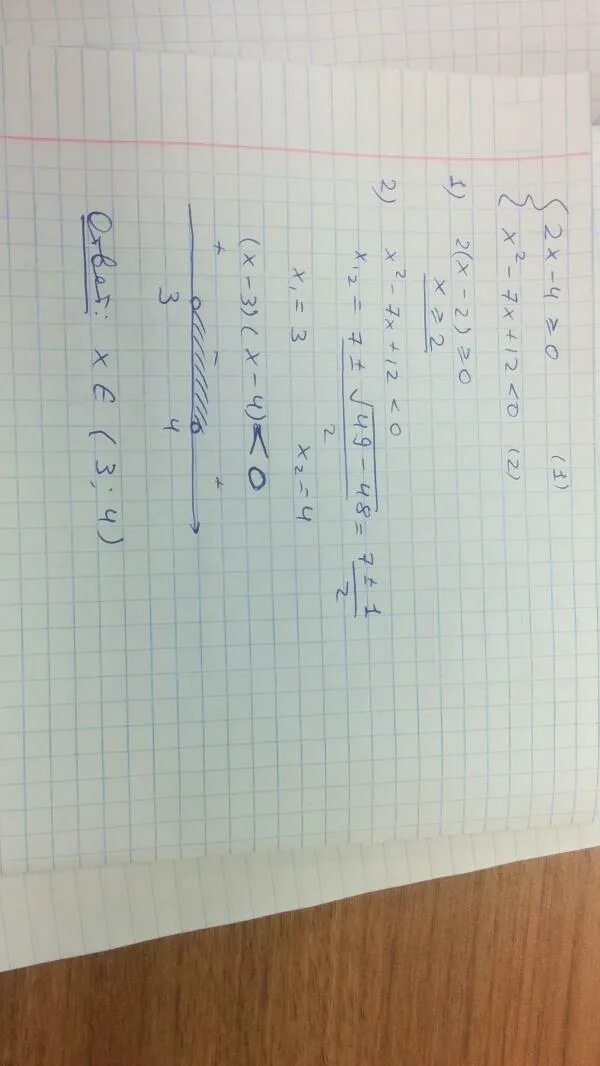 { 2x - 4 ≥ 0 (1)
{ x² - 7x + 12 < 0 (2)
1) 2(x - 2) ≥ 0
x ≥ 2
2) x² - 7x + 12 < 0
x₁,₂ = (7 ± √(49 - 48))/2 = (7 ± 1)/2
x₁ = 3 x₂ = 4
(x - 3)(x - 4) < 0
+ - +
3 4
Ответ: x ∈ (3; 4)